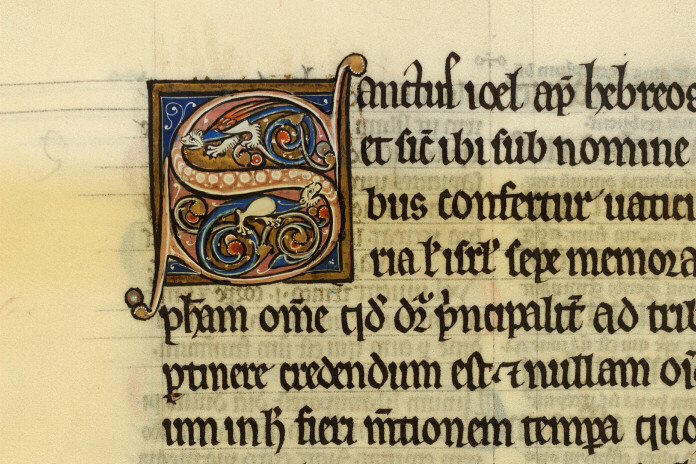 Sanctus ioel ap̄ hebreos
et sic̄ ibi sub nomine
bus confertur uatici
ria ł isrł sepe memora
pħam om̄e qd̓ dr̄ p̓ncipalit̄ ad trib
ꝑtinere credendum est ⁊ nullam oi
um in ħ fieri m̄tionem tempa quo